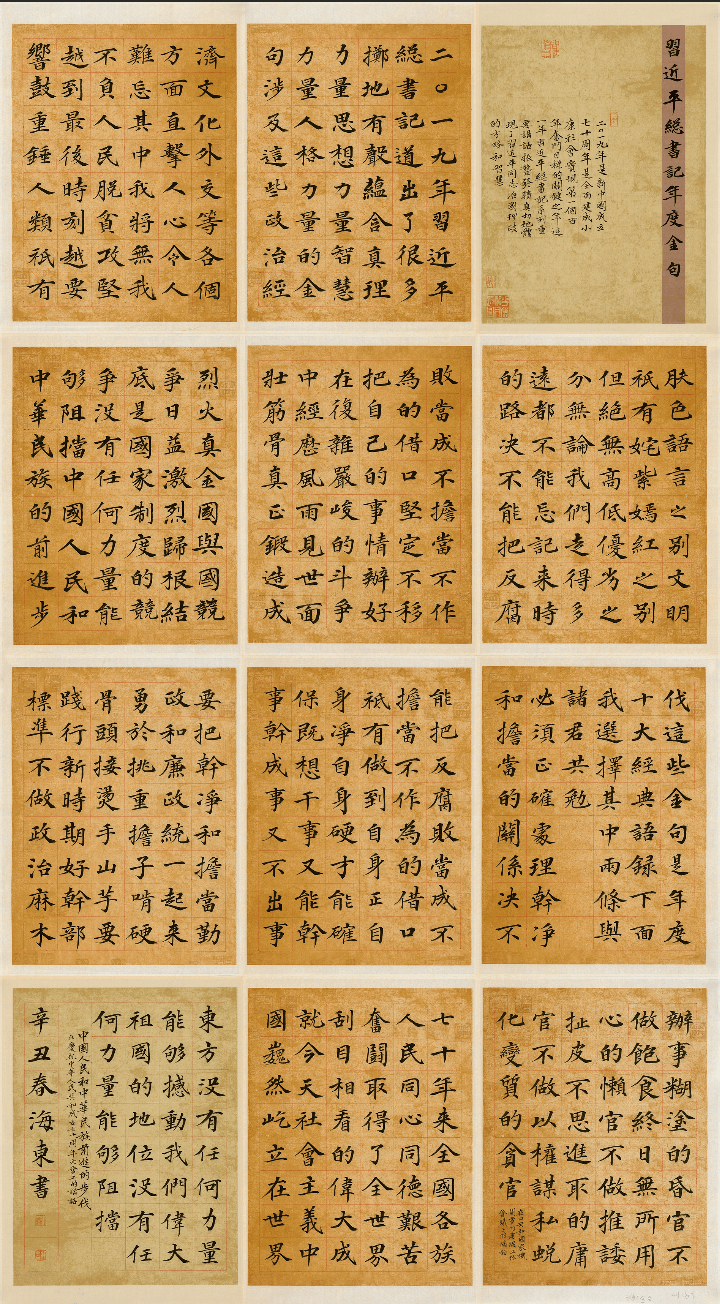 習近平總書記年度金句
二〇一九年是新中國成立
七十周年是全面建成小
康社會實現第一個百
年奮鬥目標的關鍵之年這
一年習近平總書記系列重
要講話
現了習近平同志治國理政
的方略和智慧
二〇一九年習近平
総書記道出了很多
擲地有聲蘊含真理
力量思想力量智慧
力量人格力量的金
句涉及這些政治經
濟文化外交等各個
方面直擊人心令人
難忘其中我將無我
不負人民脫貧攻堅
越到最後時刻越要
響鼓重錘人類祇有
膚色語言之別文明
祇有姹紫嫣紅之別
但絕無高低優劣之
分無論我們走得多
遠都不能忘記来時
的路决不能把反腐
敗當成不擔當不作
為的借口堅定不移
把自己的事情辦好
在復雜嚴峻的斗爭
中經歷風雨見世面
壯筋骨真正鍛造成
烈火真金國與國競
爭日益激烈歸根結
底是國家制度的競
爭没有任何力量能
够阻擋中國人民和
中華民族的前進步
伐這些金句是年度
十大經典語録下面
我選擇其中兩條與
諸君共勉
必須正確處理幹净
和擔當的關係决不
能把反腐敗當成不
擔當不作為的借口
祇有做到自身正自
身凈自身硬才能確
保既想干事又能幹
事幹成事又不出事
要把幹凈和擔當勤
政和廉政統一起来
勇於挑重擔子啃硬
骨頭接燙手山芋要
踐行新時期好幹部
標準不做政治麻木
辦事糊塗的昏官不
做飽食終日無所用
心的懒官不做推諉
扯皮不思進取的庸
官不做以權謀私蜕
化變質的貪官
七十年来全國各族
人民同心同德艱苦
奮鬪取得了全世界
刮目相看的偉大成
就今天社會主義中
國巍然屹立在世界
東方没有任何力量
能够撼動我們偉大
祖國的地位没有任
何力量能够阻擋
中國人民和中華民族前進的步伐
辛丑春海東書